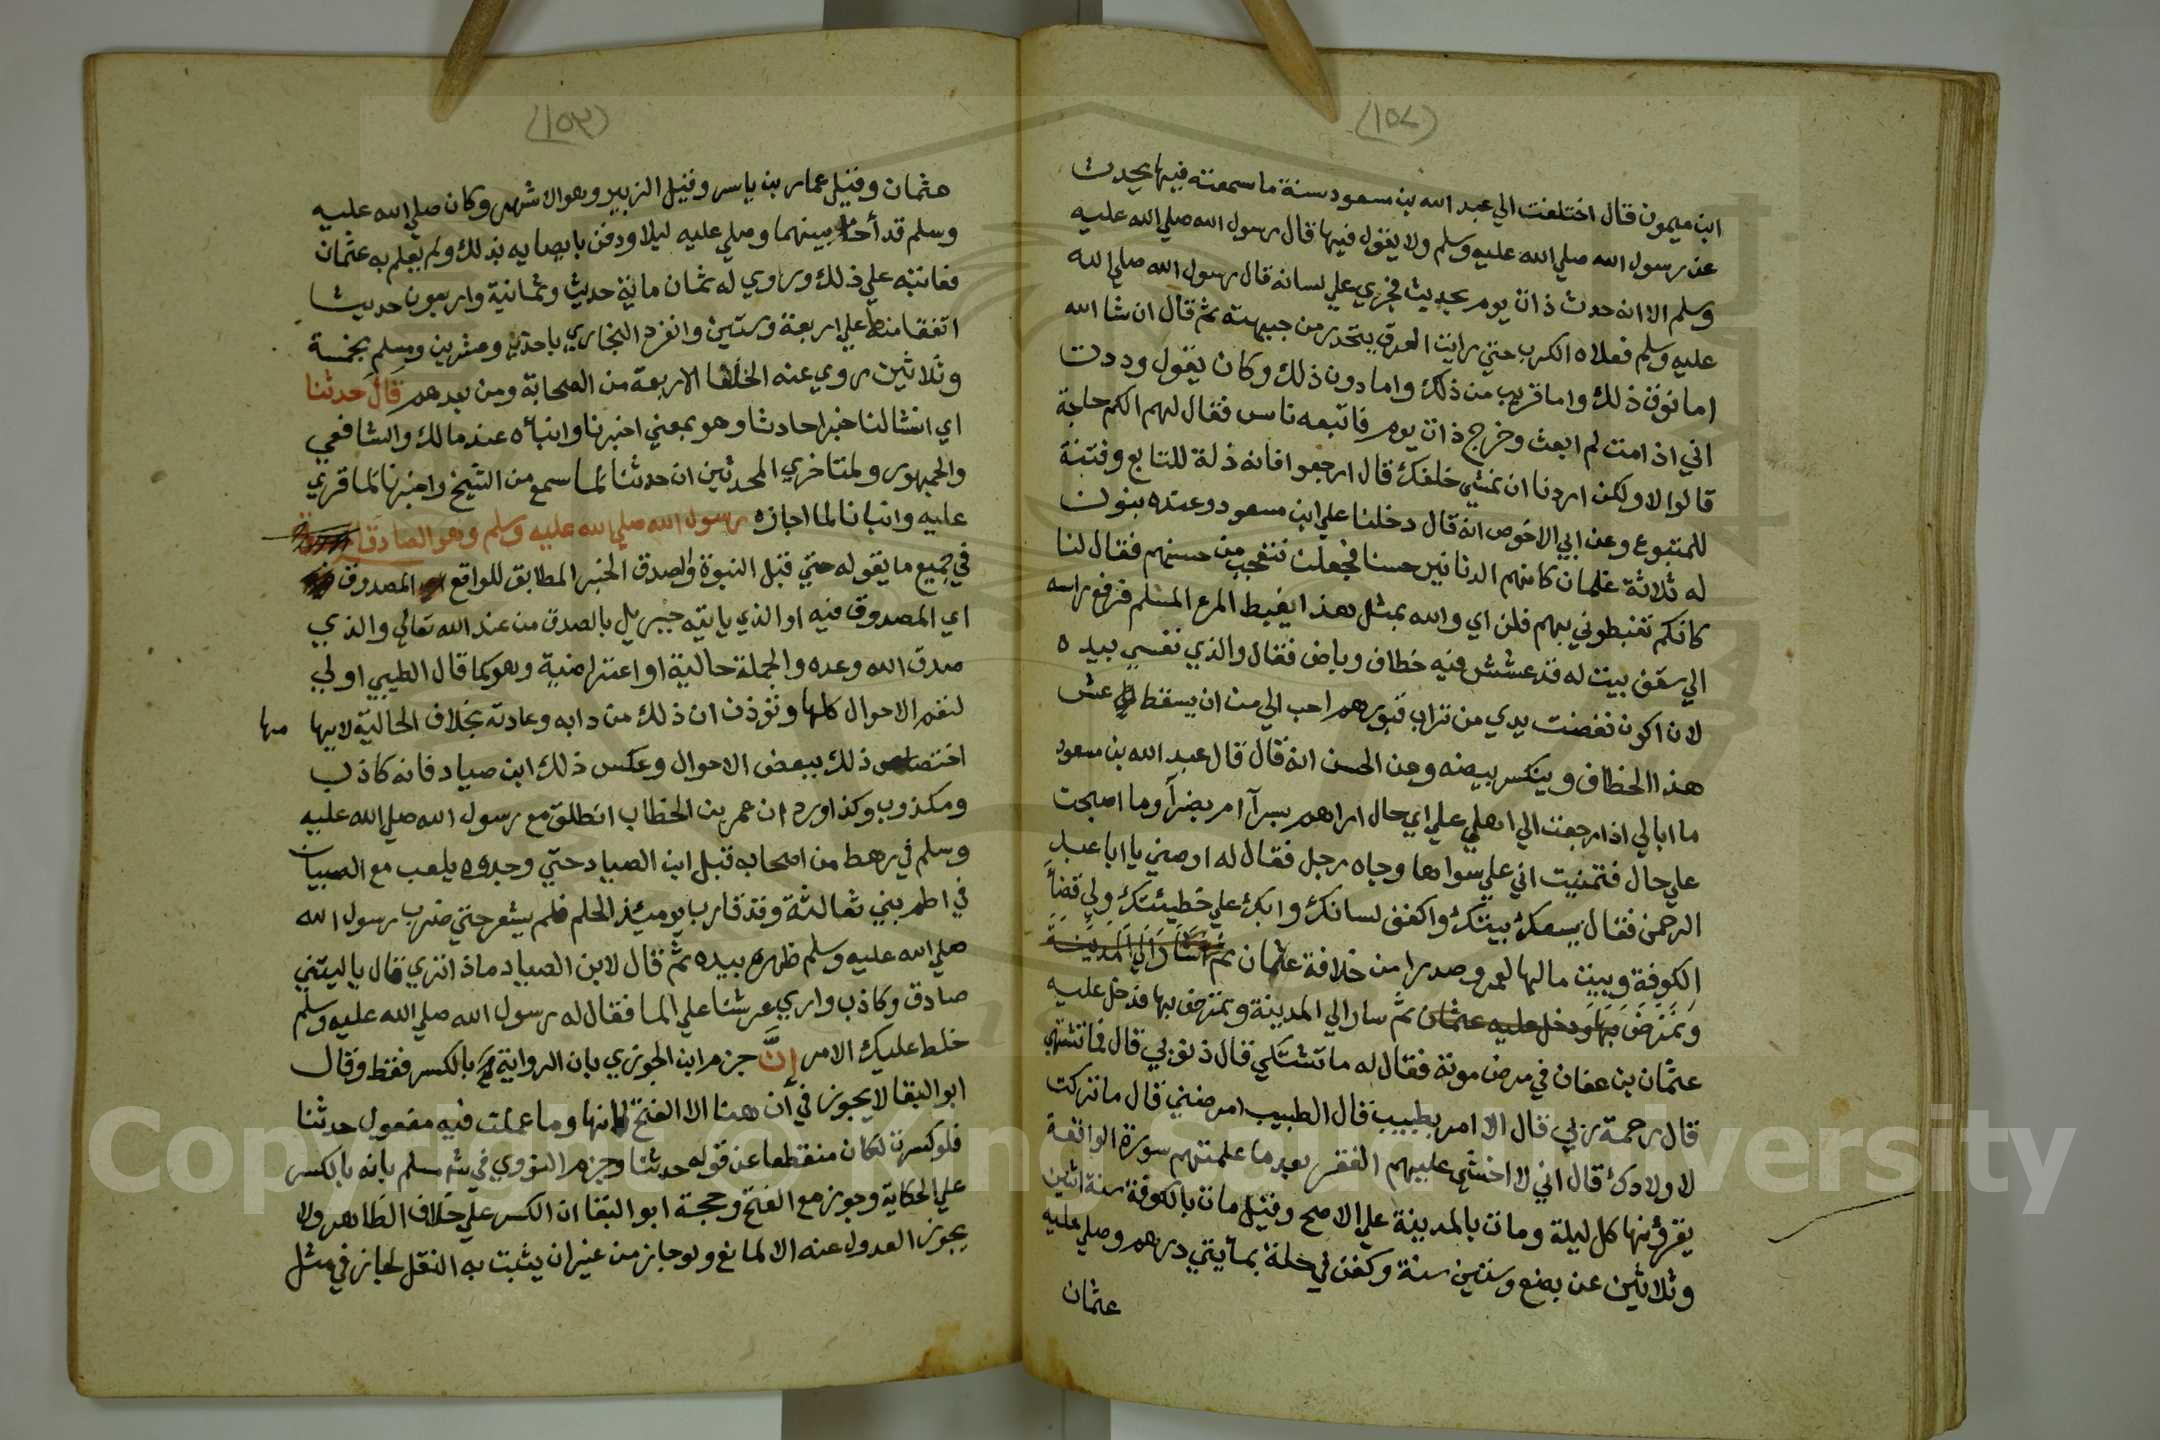 (١٥٢)
ابن ميمون قال اختلفت الي عبد الله بن مسعود سنة ما سمعته فيها يحدث
عن رسول الله صلي الله عليه وسلم ولا يقول فيها قال رسول الله صلي الله عليه
وسلم الا انه حدث ذات يوم بحديث فجري علي لسانه قال رسول الله صلي الله
عليه وسلم فعلاه الكرب حتي رايت العرق يتحدر من جبهته ثم قال ان شا الله
اما فوق ذلك واما قريب من ذلك واما دون ذلك وكان يقول وددت
اني اذا مت لم ابعث وخرج ذات يوم فاتبعه ناس فقال لهم الكم حاجة
قالوا لا ولكن اردنا ان نمشي خلفك قال ارجعوا فانه ذلة للتابع وفتنة
للمتبوع وعن ابي الاحوص انه قال دخلنا علي ابن مسعود وعنده بنون
له ثلاثة غلمان كانهم الدنانير حسنا فجعلت نتعجب من حسنهم فقال لنا
كانكم تغبطوني بهم قلن اي والله بمثل هذا يغبط المرء المسلم فرفع راسه
الي سقف بيت له قد عشش فيه خطاف وباض فقال والذي نفسي بيده
لان اكون نفضت يدي من تراب قبورهم احب الي من ان يسقط عش
هذا الخطاف وينكسر بيضه وعن الحسن انه قال قال عبد الله بن مسعود
ما ابالي اذا رجعت الي اهلي علي اي حال اراهم بسرآ ام بضرآ وما اصبحت
علي حال فتمنيت اني علي سواها وجاه رجل فقال له اوصني يا ابا عبد
الرحمن فقال يسعك بيتك واكفف لسانك وابك علي خطيئتك ولي قضاً
الكوفة وبيت مالها لعمر وصدرا من خلافة عثمان ثم سار الي المدينة
وتمرض بها ودخل عليه عثمان ثم سار الي المدينة وتمرض بها فدخل عليه
عثمان بن عفان في مرض موته فقال له ما تشتكي قال ذنوبي قال فما تشتهي
قال رحمة ربي قال الا امر بطبيب قال الطبيب امرضني قال ما تركت
لاولادك قال اني لا اخشي عليهم الفقر بعد ما علمتهم سورة الواقعة
يقرؤنها كل ليلة ومات بالمدينة علي الاصح وقيل مات بالكوفة سنة اثنين
وثلاثين عن بضع وستين سنة وكفن في حلة بمايتي درهم وصلي عليه
عثمان
(١٥٣)
عثمان وقيل عمار بن ياسر وقيل الزبير وهو الاشهر وكان صلي الله عليه
وسلم قد أخا بينهما وصلي عليه ليلا ودفن بايصايه بذلك ولم يعلم به عثمان
فعاتبه علي ذلك وروي له ثمان ماية حديث وثمانية واربعون حديثا
اتفقا منها علي اربعة وستين وانفرد البخاري باحد وعشرين ومسلم بخمسة
وثلاثين روي عنه الخلفا الاربعة من الصحابة ومن بعدهم قال حدثنا
اي انشا لنا خبرا حادثا وهو بمعني اخبرنا وانباه عند مالك والشافعي
والجمهور ولمتاخري المحدثين ان حدثنا لما سمع من الشيخ واخبرنا لما قري
عليه وانبانا لما اجازه رسول الله صلي الله عليه وسلم وهو الصادق
في جميع ما يقوله حتي قبل النبوة والصدق الخبر المطابق للواقع المصدوق
اي المصدوق فيه او الذي ياتيه جبريل بالصدق من عند الله تعالي والذي
صدق الله وعده والجملة حالية او اعتراضية وهو كما قال الطيبي اولي
لتعم الاحوال كلها وتوذن ان ذلك من دابه وعادته بخلاف الحالية لايهامها
اختصاص ذلك ببعض الاحوال وعكس ذلك ابن صياد فانه كاذب
ومكذوب وكذا ورد ان عمر بن الخطاب انطلق مع رسول الله صلي الله عليه
وسلم في رهط من اصحابه قبل ابن الصياد حتي وجدوه يلعب مع الصبيان
في اطم بني ثعالثة وقد قارب يوميئذ الحلم فلم يشعر حتي ضرب رسول الله
صلي الله عليه وسلم ظهره بيده ثم قال لابن الصياد ماذا تري قال ياتيني
صادق وكاذب واري عرشا علي الما فقال له رسول الله صلي الله عليه وسلم
خلط عليك الامر إنَّ جزم ابن الجوزي بان الرواية بالكسر فقط وقال
ابو البقا لا يجوز في أن هنا الا الفتح لانها وما عملت فيه مفعول حدثنا
فلو كسرت لكان منقطعا عن قوله حدثنا وجزم النووي في شرح مسلم بانه بالكسر
علي الحكاية وجوز مع الفتح وحجة ابو البقا ان الكسر علي خلاف الظاهر ولا
يجوز العدول عنه الا لمانع ولو جاز من غير ان يثبت به النقل لجاز في مثل
Copyright © King Saud University